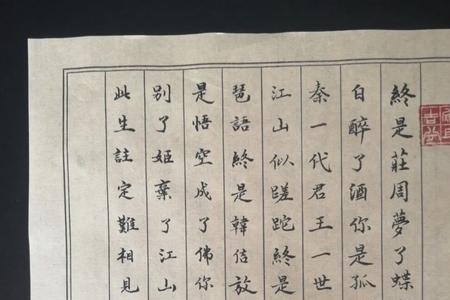 終是莊周夢了蝶
白醉了酒你是孤
秦一代君王一世
江山似蹉跎終是
琶語終是韓信放
是悟空成了佛你
別了姬棄了江山
此生註定難相見